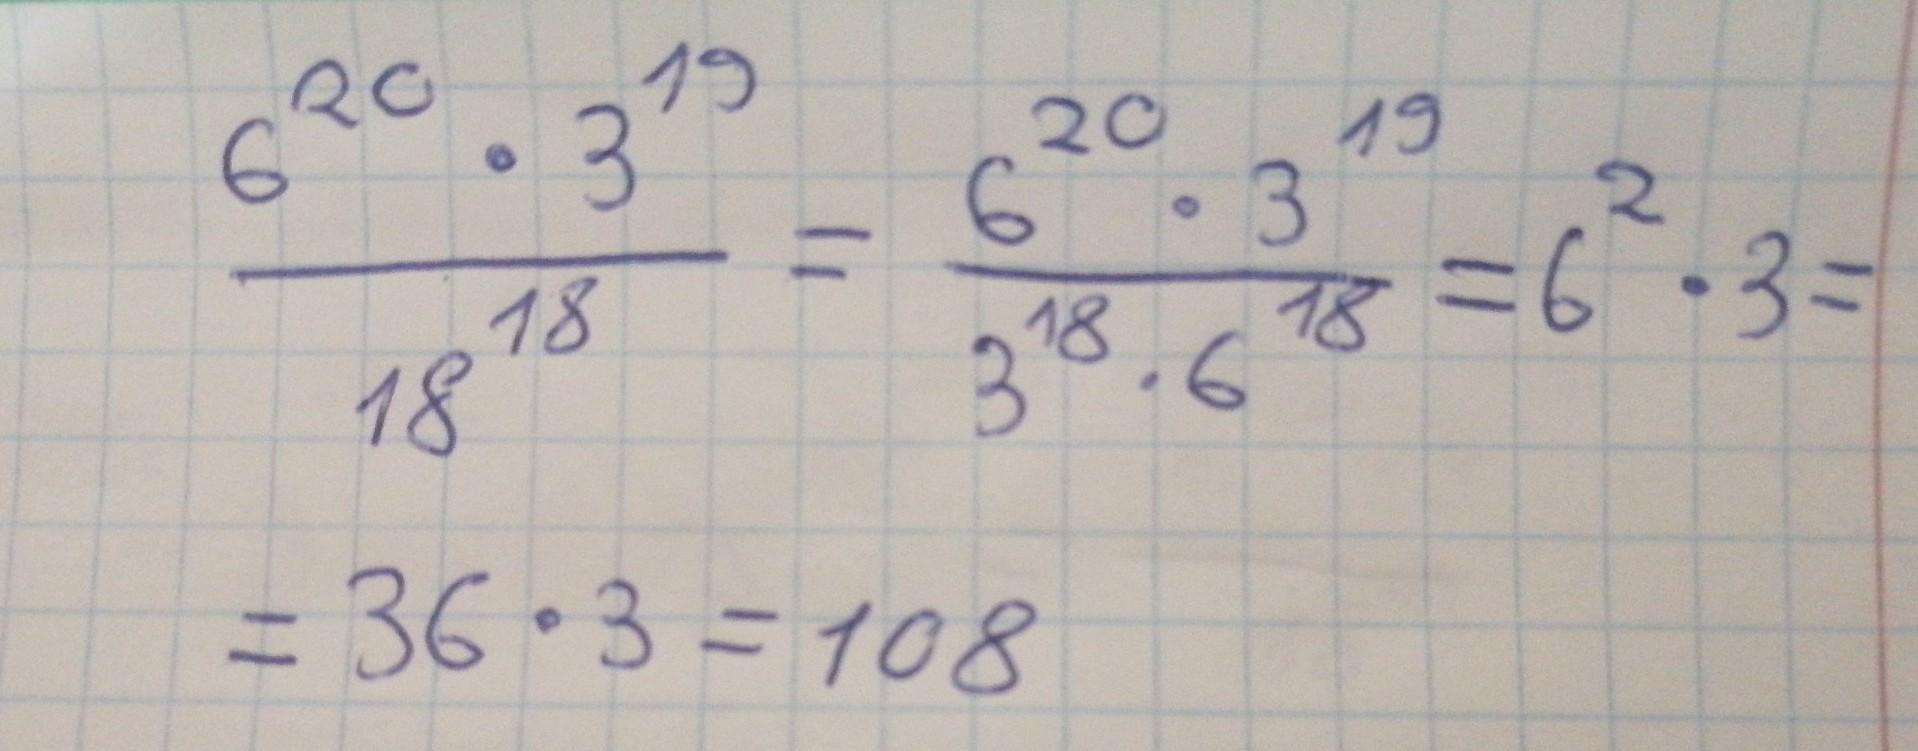 6^20 · 3^19 / 18^18 = 6^20 · 3^19 / 3^18 · 6^18 = 6^2 · 3 =
= 36 · 3 = 108